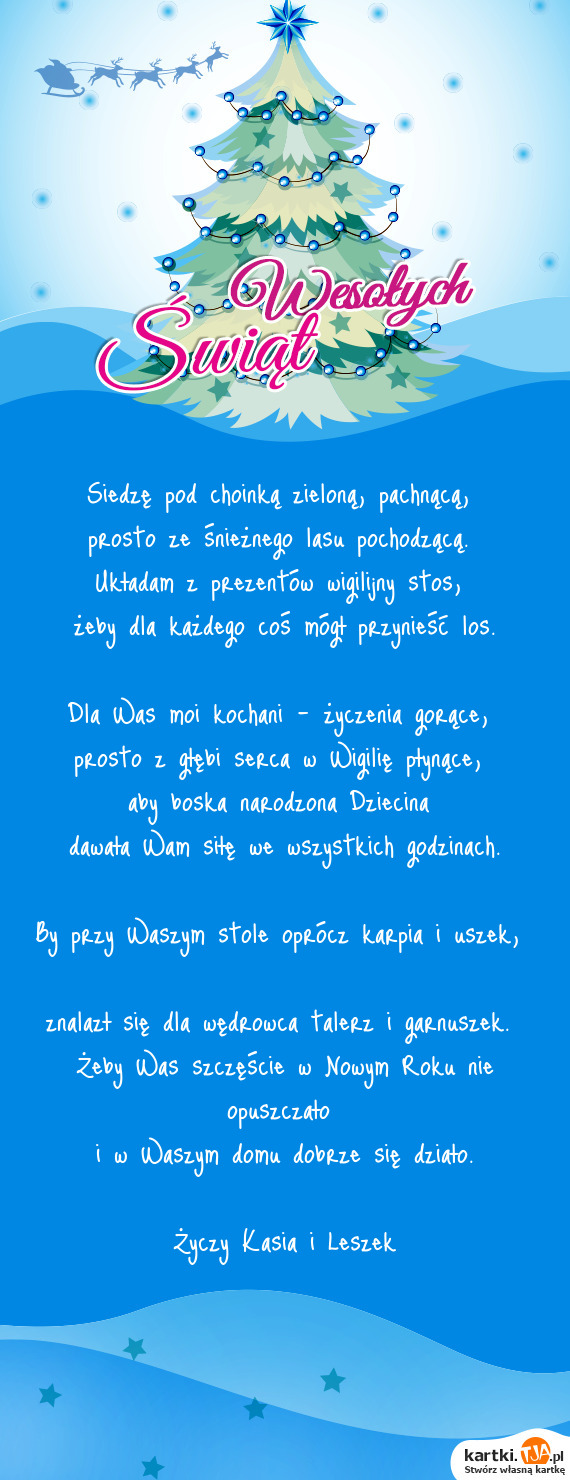 Wesołych
Świąt
Siedzę pod choinką zieloną, pachnącą,
prosto ze śnieżnego lasu pochodzącą.
Układam z prezentów wigilijny stos,
żeby dla każdego coś mógł przynieść los.
Dla Was moi kochani - życzenia gorące,
prosto z głębi serca w Wigilię płynące,
aby boska narodzona Dziecina
dawała Wam siłę we wszystkich godzinach.
By przy Waszym stole oprócz karpia i uszek,
znalazł się dla wędrowca talerz i garnuszek.
Żeby Was szczęście w Nowym Roku nie
opuszczało
i w Waszym domu dobrze się działo.
Życzy Kasia i Leszek
kartki.TJA.pl
Stwórz własną kartkę